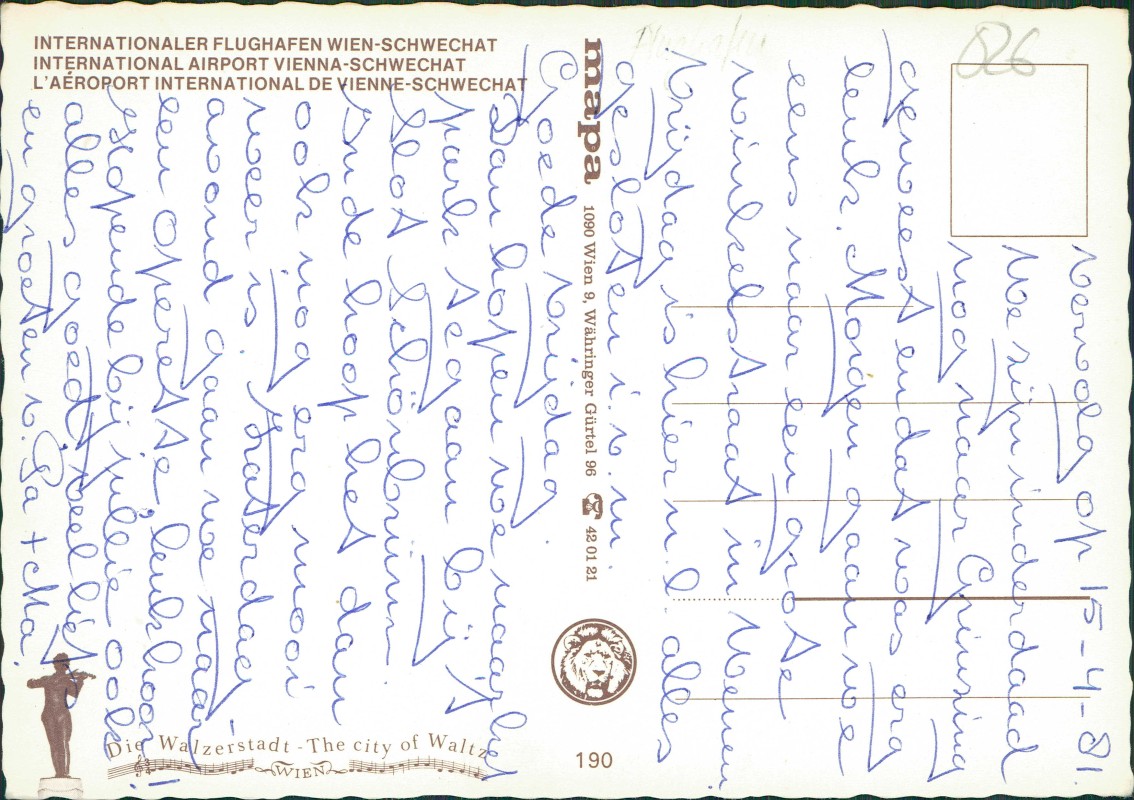 INTERNATIONALER FLUGHAFEN WIEN-SCHWECHAT
INTERNATIONAL AIRPORT VIENNA-SCHWECHAT
L'AÉROPORT INTERNATIONAL DE VIENNE-SCHWECHAT
826
Vervolg op 15-4-81.
We zijn inderdaad
nog naar Grinzing
geweest en dat was erg
leuk. Morgen gaan we
eens naar een grote
winkelstraat in Wenen
Vrijdag is hier n.l. alles
gesloten i.v.m.
Goede Vrijdag.
Dan hopen we naar het
park te gaan bij 't
Slot Schönbrünn.
In de hoop het dan
ook nog erg mooi
weer is. Zaterdag
avond gaan we naar
een operette, leuk hoor!
Hopende bij jullie ook
alles goed, veel liefs
en groeten v. Pa + Ma.
mapa 1090 Wien 9, Währinger Gürtel 96 ☎ 42 01 21
Die Walzerstadt - The city of Waltz
WIEN
190